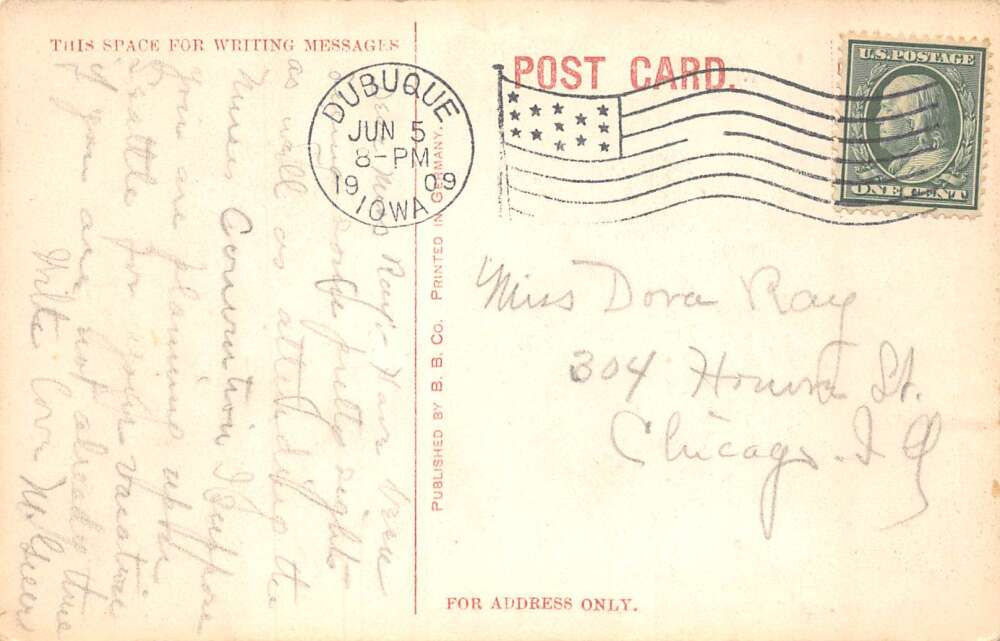 THIS SPACE FOR WRITING MESSAGES
POST CARD.
DUBUQUE
JUN 5
8-PM
19 09
IOWA
U.S. POSTAGE
ONE CENT
Miss Dora Ray
304 Honore St.
Chicago. Ill
PUBLISHED BY B. B. CO. PRINTED IN GERMANY.
Miss Ray- Have been
some pretty sights
as well as attending the
Nurses Convention I suppose
you are planning upon
Seattle for your vacation
if you are not already there
Write Cora
FOR ADDRESS ONLY.